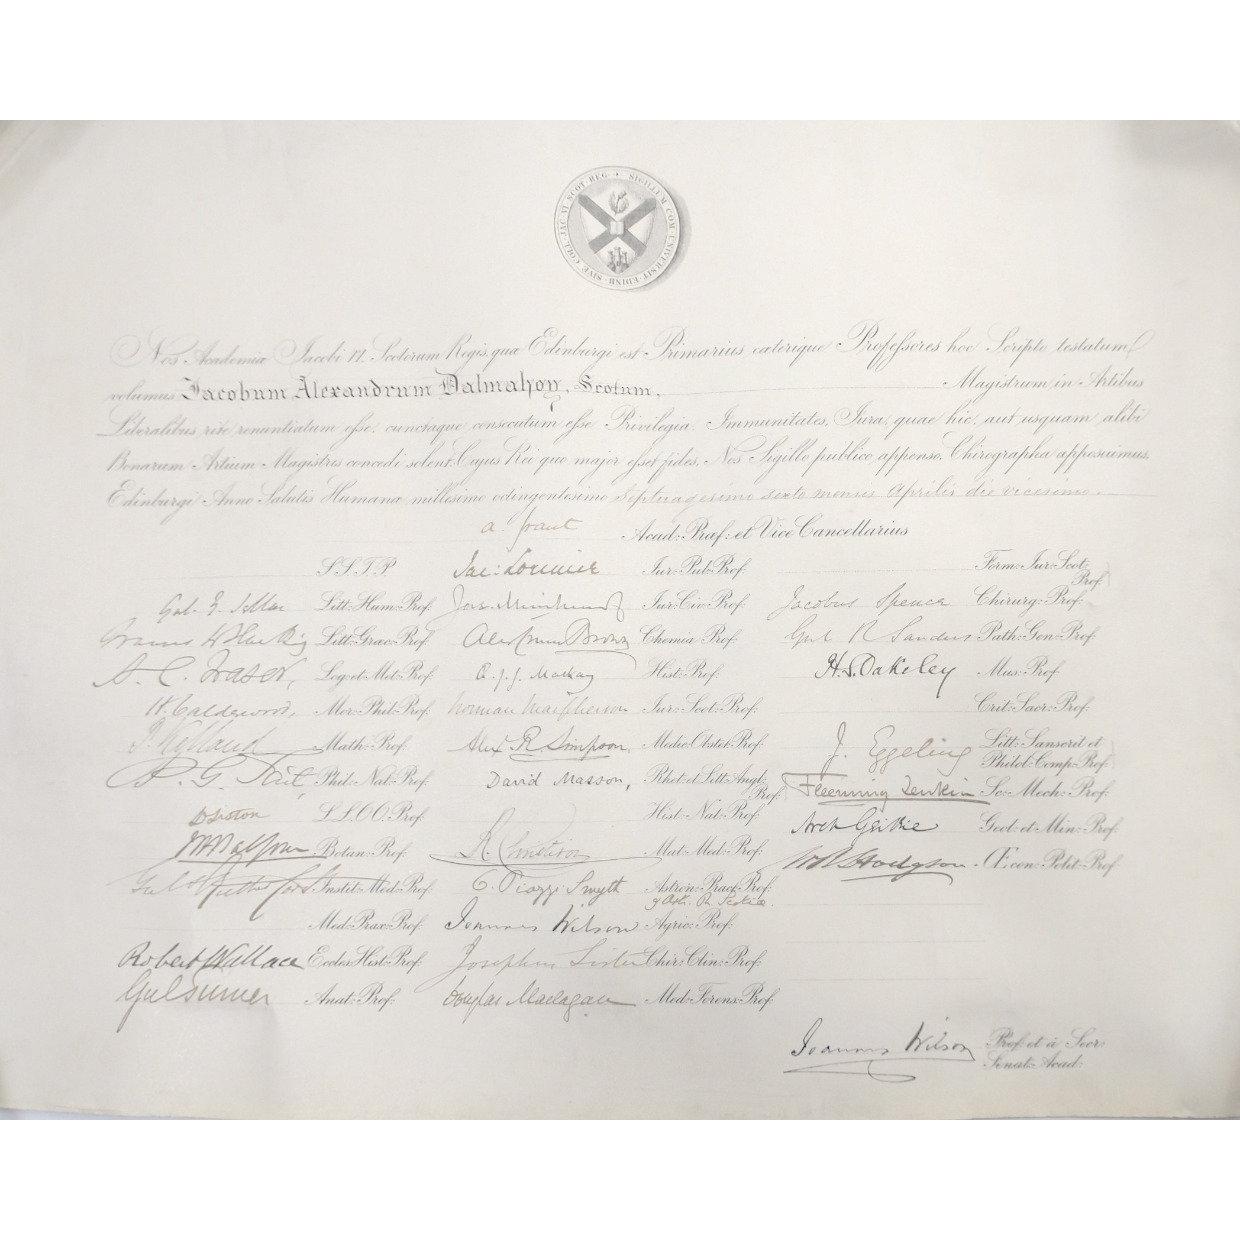 SIGILLUM COM UNIVERSIT EDINB SIVE COLL JAC VI SCOT REG
Nos Academiæ Jacobi VI. Scotorum Regis, quæ Edinburgi est Primarius cæterique Professores hoc Scripto testatum
volumus Jacobum Alexandrum Dalmahoy, Scotum, Magistrum in Artibus
Liberalibus rite renuntiatum esse, cunctaque consecutum esse Privilegia, Immunitates, Jura, quæ hic, aut usquam alibi
Bonarum Artium Magistris concedi solent. Cujus Rei quo major esset fides, Nos Sigillo publico appenso, Chirographa apposuimus.
Edinburgi Anno Salutis Humanæ millesimo octingentesimo septuagesimo sexto mensis Aprilis die vicesimo.
A. Grant Acad: Præf: et Vice Cancellarius
S.S.T.P. Jac: Lorimer Jur: Pub: Prof: Form: Jur: Scot: Prof:
Gul. Y. Sellar Litt: Hum: Prof: Jos. Muirhead Jur: Civ: Prof: Jacobus Spence Chirurg: Prof:
Litt: Græc: Prof: Alex Crum Brown Chemiæ Prof: Gul R Sanders Path: Gen: Prof:
A. C. Fraser, Log: et Met: Prof: Æ. J. G. Mackay Hist: Prof: H. S. Oakeley Mus: Prof
H. Calderwood, Mor: Phil: Prof: Norman Macpherson Jur: Scot: Prof: Crit: Sacr: Prof:
P. Kelland Math: Prof: Alex R Simpson, Medic: Obstet: Prof: J. Eggeling Litt: Sanscrit et Philol: Comp: Prof:
P. G. Tait Phil: Nat: Prof: David Masson, Rhet: et Litt: Angl: Prof: Fleeming Jenkin Sc: Mech: Prof:
D Liston L L.O O. Prof: Hist: Nat: Prof: Arch Geikie Geol: et Min: Prof:
JH Balfour Botan: Prof: R. Christison Mat: Med: Prof: WB Hodgson Œcon: Polit: Prof
Gul Rutherford Instit: Med: Prof: C. Piazzi Smyth Astron: Pract: Prof:
Med: Prax: Prof: Joannes Wilson Agric: Prof:
Robert Wallace Eccles: Hist: Prof: Josephus Lister Chir: Clin: Prof:
Gul Turner Anat: Prof: Douglas Maclagan Med: Forens: Prof:
Joannes Wilson Prof: et à Secr:
Senat: Acad: